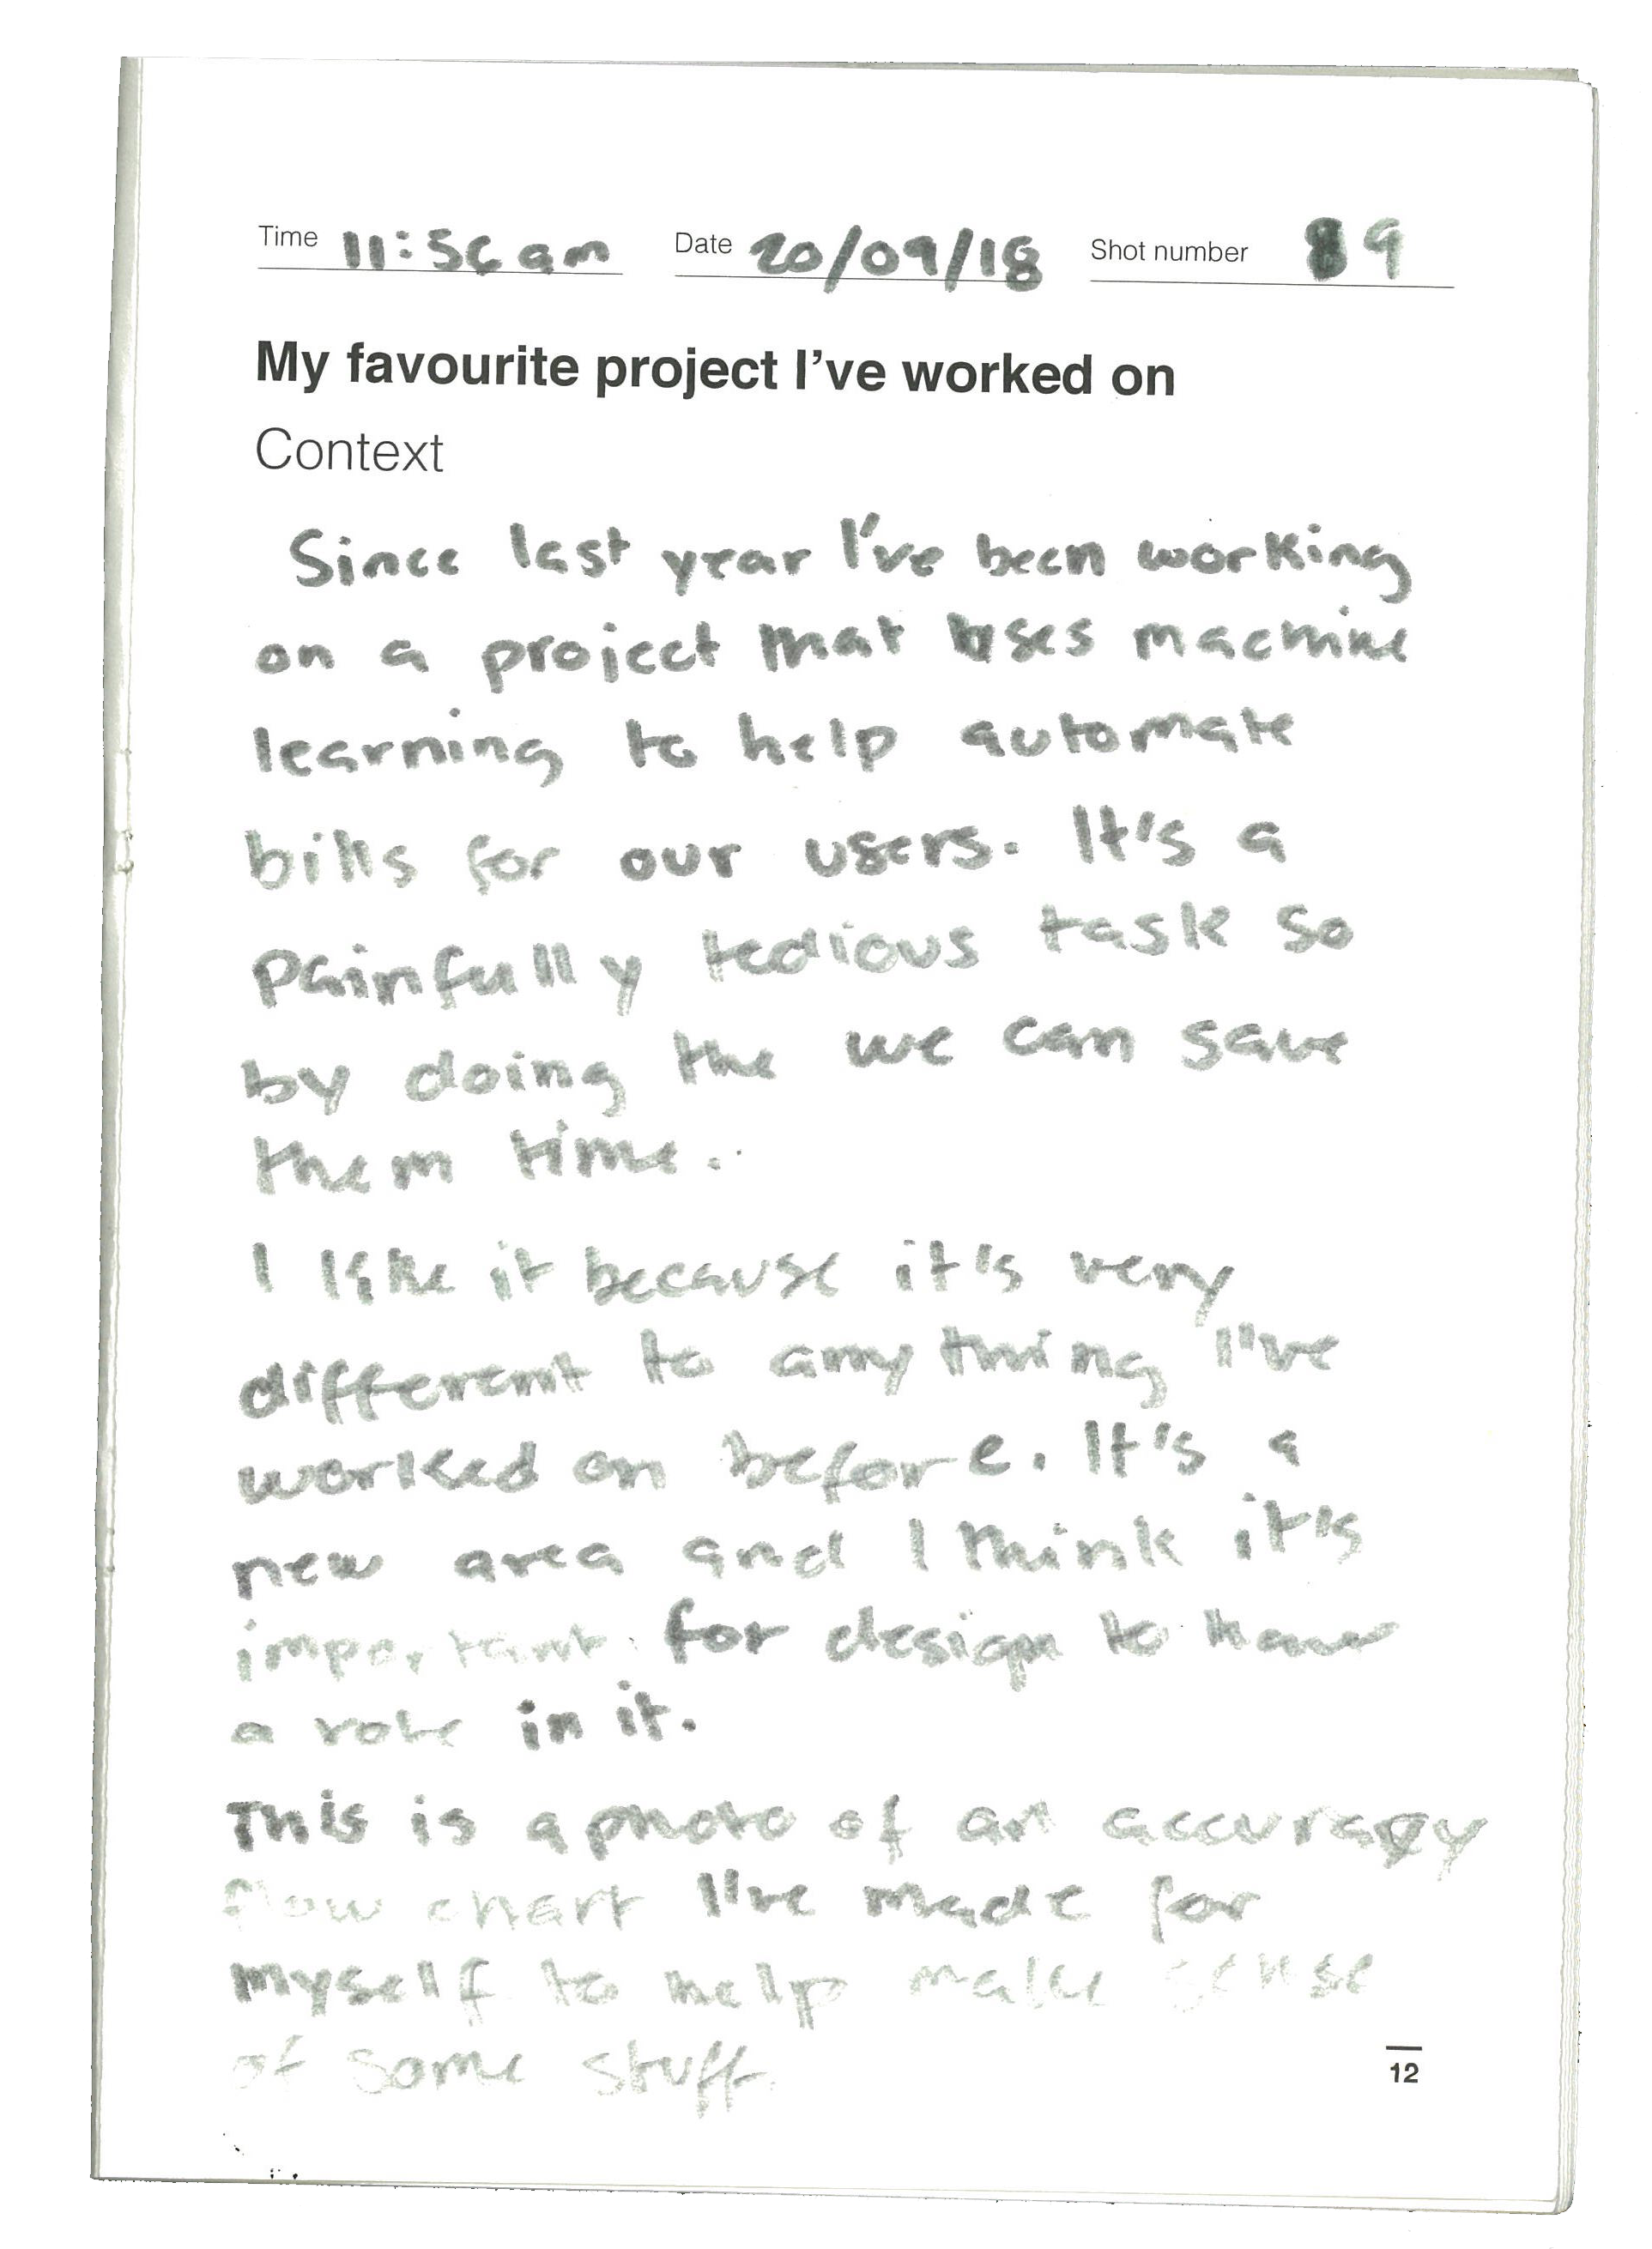 Time 11:56am Date 20/09/18 Shot number 9
My favourite project I've worked on
Context
Since last year I've been working
on a project that uses machine
learning to help automate
bills for our users. It's a
painfully tedious task so
by doing the we can save
them time.
I like it because it's very
different to anything I've
worked on before. It's a
new area and I think it's
important for design to have
a role in it.
This is a photo of an accuracy
flow chart I've made for
myself to help make sense
of some stuff.
12